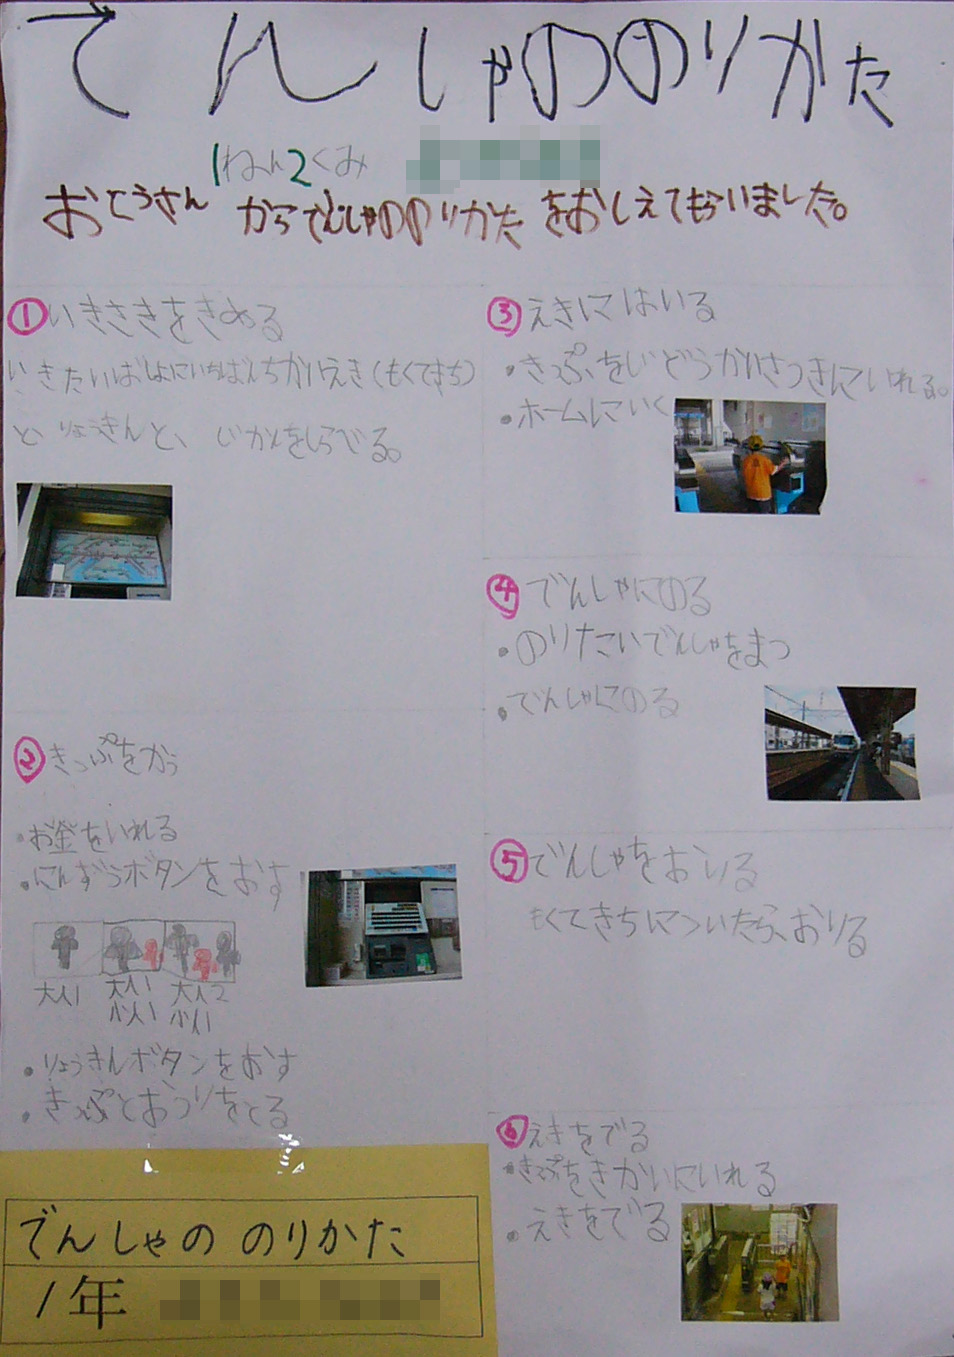 でんしゃののりかた
1ねん2くみ
おとうさんからでんしゃののりかたをおしえてもらいました。
①いきさきをきめる
いきたいばしょにいちばんちかいえき(もくてきち)
と、りょうきんと、じかんをしらべる。
②きっぷをかう
・お金をいれる
・にんずうボタンをおす
大人1 大人1 大人2
小人1 小人1
・りょうきんボタンをおす
・きっぷとおつりをとる
③えきにはいる
・きっぷをじどうかいさつきにいれる。
・ホームにいく
④でんしゃにのる
・のりたいでんしゃをまつ
・でんしゃにのる
⑤でんしゃをおりる
もくてきちについたら、おりる
⑥えきをでる
・きっぷをきかいにいれる
・えきをでる
でんしゃの のりかた
1年